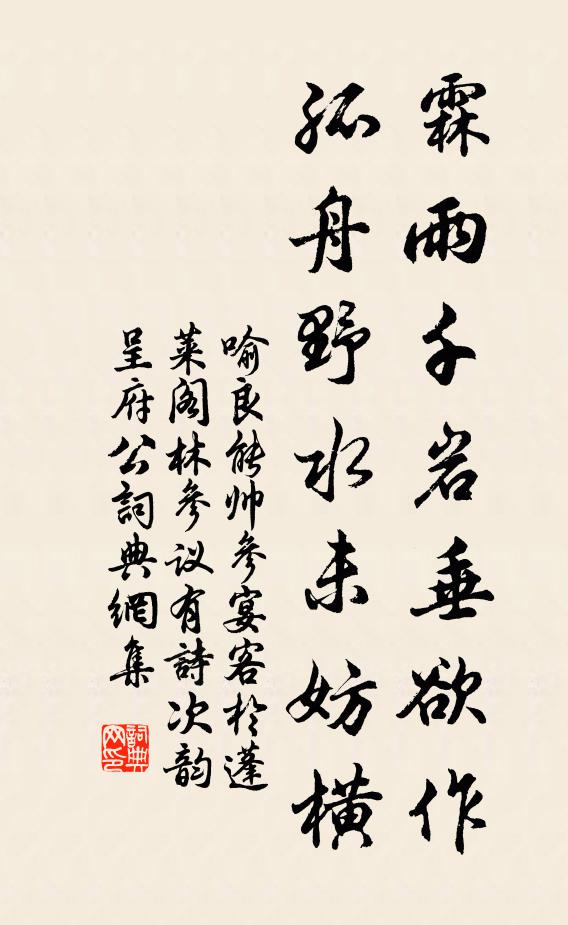 霖雨千岩垂欲作
孤舟野水未妨横
喻良能帅參宴客於蓬
莱阁林參议有詩次韵
呈府公詞典網集
詞典
网印